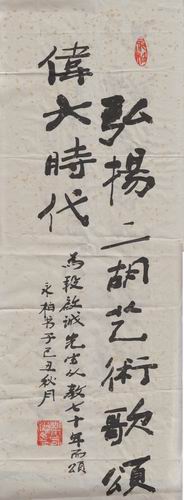 弘揚二胡艺術歌頌
偉大時代
為段啟诚先生从教七十年而頌
永柏弟子己丑秋月